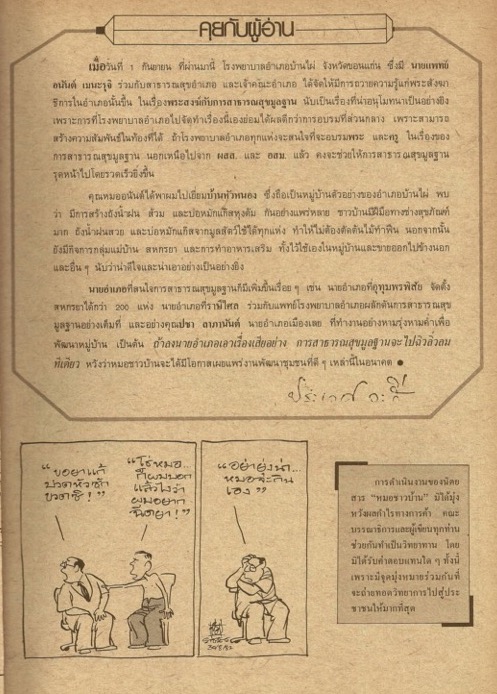 คุยกับผู้อ่าน
เมื่อวันที่ 1 กันยายน ที่ผ่านมานี้ โรงพยาบาลอำเภอบ้านไผ่ จังหวัดขอนแก่น ซึ่งมี นายแพทย์
อนันต์ เมนะรุจิ ร่วมกับสาธารณสุขอำเภอ และเจ้าคณะอำเภอ ได้จัดให้มีการถวายความรู้แก่พระสังฆา
ธิการในอำเภอนั้นขึ้น ในเรื่องพระสงฆ์กับการสาธารณสุขมูลฐาน นับเป็นเรื่องที่น่าอนุโมทนาเป็นอย่างยิ่ง
เพราะการที่โรงพยาบาลอำเภอไปจัดทำเรื่องนี้เองย่อมได้ผลดีกว่าการอบรมที่ส่วนกลาง เพราะสามารถ
สร้างความสัมพันธ์ในท้องที่ได้ ถ้าโรงพยาบาลอำเภอทุกแห่งจะสนใจที่จะอบรมพระ และครู ในเรื่องของ
การสาธารณสุขมูลฐาน นอกเหนือไปจาก ผสส. และ อสม. แล้ว คงจะช่วยให้การสาธารณสุขมูลฐาน
รุดหน้าไปโดยรวดเร็วยิ่งขึ้น
คุณหมออนันต์ได้พาผมไปเยี่ยมบ้านหัวหนอง ซึ่งถือเป็นหมู่บ้านตัวอย่างของอำเภอบ้านไผ่ พบ
ว่า มีการสร้างถังน้ำฝน ส้วม และบ่อหมักแก๊สหุงต้ม กันอย่างแพร่หลาย ชาวบ้านมีฝีมือทางช่างสุขภัณฑ์
มาก ถังน้ำฝนสวย และบ่อหมักแก๊สจากมูลสัตว์ใช้ได้ทุกแห่ง ทำให้ไม่ต้องตัดต้นไม้ทำฟืน นอกจากนั้น
ยังมีกิจการกลุ่มแม่บ้าน สหกรยา และการทำอาหารเสริม ทั้งไว้ใช้เองในหมู่บ้านและขายออกไปข้างนอก
และอื่น ๆ นับว่าน่าดีใจและน่าเอาอย่างเป็นอย่างยิ่ง
นายอำเภอที่สนใจการสาธารณสุขมูลฐานก็มีเพิ่มขึ้นเรื่อย ๆ เช่น นายอำเภอที่อุทุมพรพิสัย จัดตั้ง
สหกรยาได้กว่า 200 แห่ง นายอำเภอที่ราษีไศล ร่วมกับแพทย์โรงพยาบาลอำเภอผลักดันการสาธารณสุข
มูลฐานอย่างเต็มที่ และอย่างคุณปชา ลาภานันต์ นายอำเภอเมืองเลย ที่ทำงานอย่างหามรุ่งหามค่ำเพื่อ
พัฒนาหมู่บ้าน เป็นต้น ถ้าลงนายอำเภอเอาเรื่องเสียอย่าง การสาธารณสุขมูลฐานจะไปฉิวลิ่วลม
ทีเดียว หวังว่าหมอชาวบ้านจะได้มีโอกาสเผยแพร่งานพัฒนาชุมชนที่ดี ๆ เหล่านี้ในอนาคต ●
ประเวศ วะสี
"ขอยาแก้
ปวดหัวซัก
ขวดซิ!"
"โธ่หมอ...
ก็ผมบอก
แล้วไงว่า
ผมอยาก
ฉีดยา!"
"อย่ายุ่งน่า...
หมอจะกิน
เอง"
การดำเนินงานของนิตย
สาร "หมอชาวบ้าน" มิได้มุ่ง
หวังผลกำไรทางการค้า คณะ
บรรณาธิการและผู้เขียนทุกท่าน
ช่วยกันทำเป็นวิทยาทาน โดย
มิได้รับค่าตอบแทนใด ๆ ทั้งนี้
เพราะมีจุดมุ่งหมายร่วมกันที่
จะถ่ายทอดวิทยาการไปสู่ประ
ชาชนให้มากที่สุด